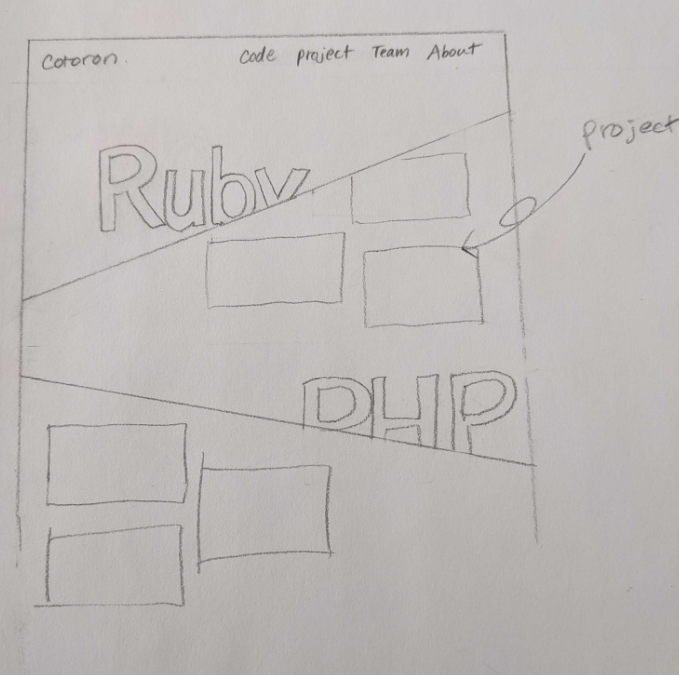 Cotoron.
Code project Team About
project
Ruby
PHP